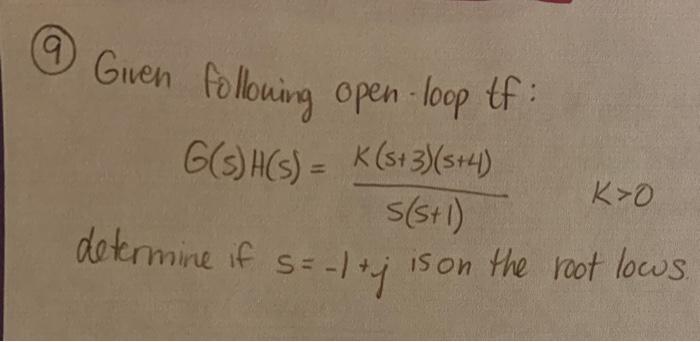 9
Given following open-loop tf:
G(s)H(s) = K(s+3)(s+4)
s(s+1)
K>0
determine if s=-1+j is on the root locus.